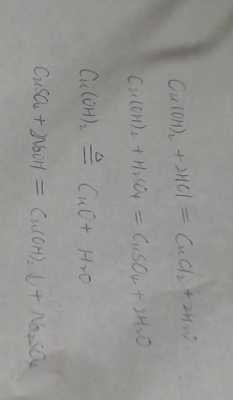 Cu(OH)₂ + 2HCl = CuCl₂ + 2H₂O
Cu(OH)₂ + H₂SO₄ = CuSO₄ + 2H₂O
Cu(OH)₂ ≜ CuO + H₂O
CuSO₄ + 2NaOH = Cu(OH)₂↓ + Na₂SO₄